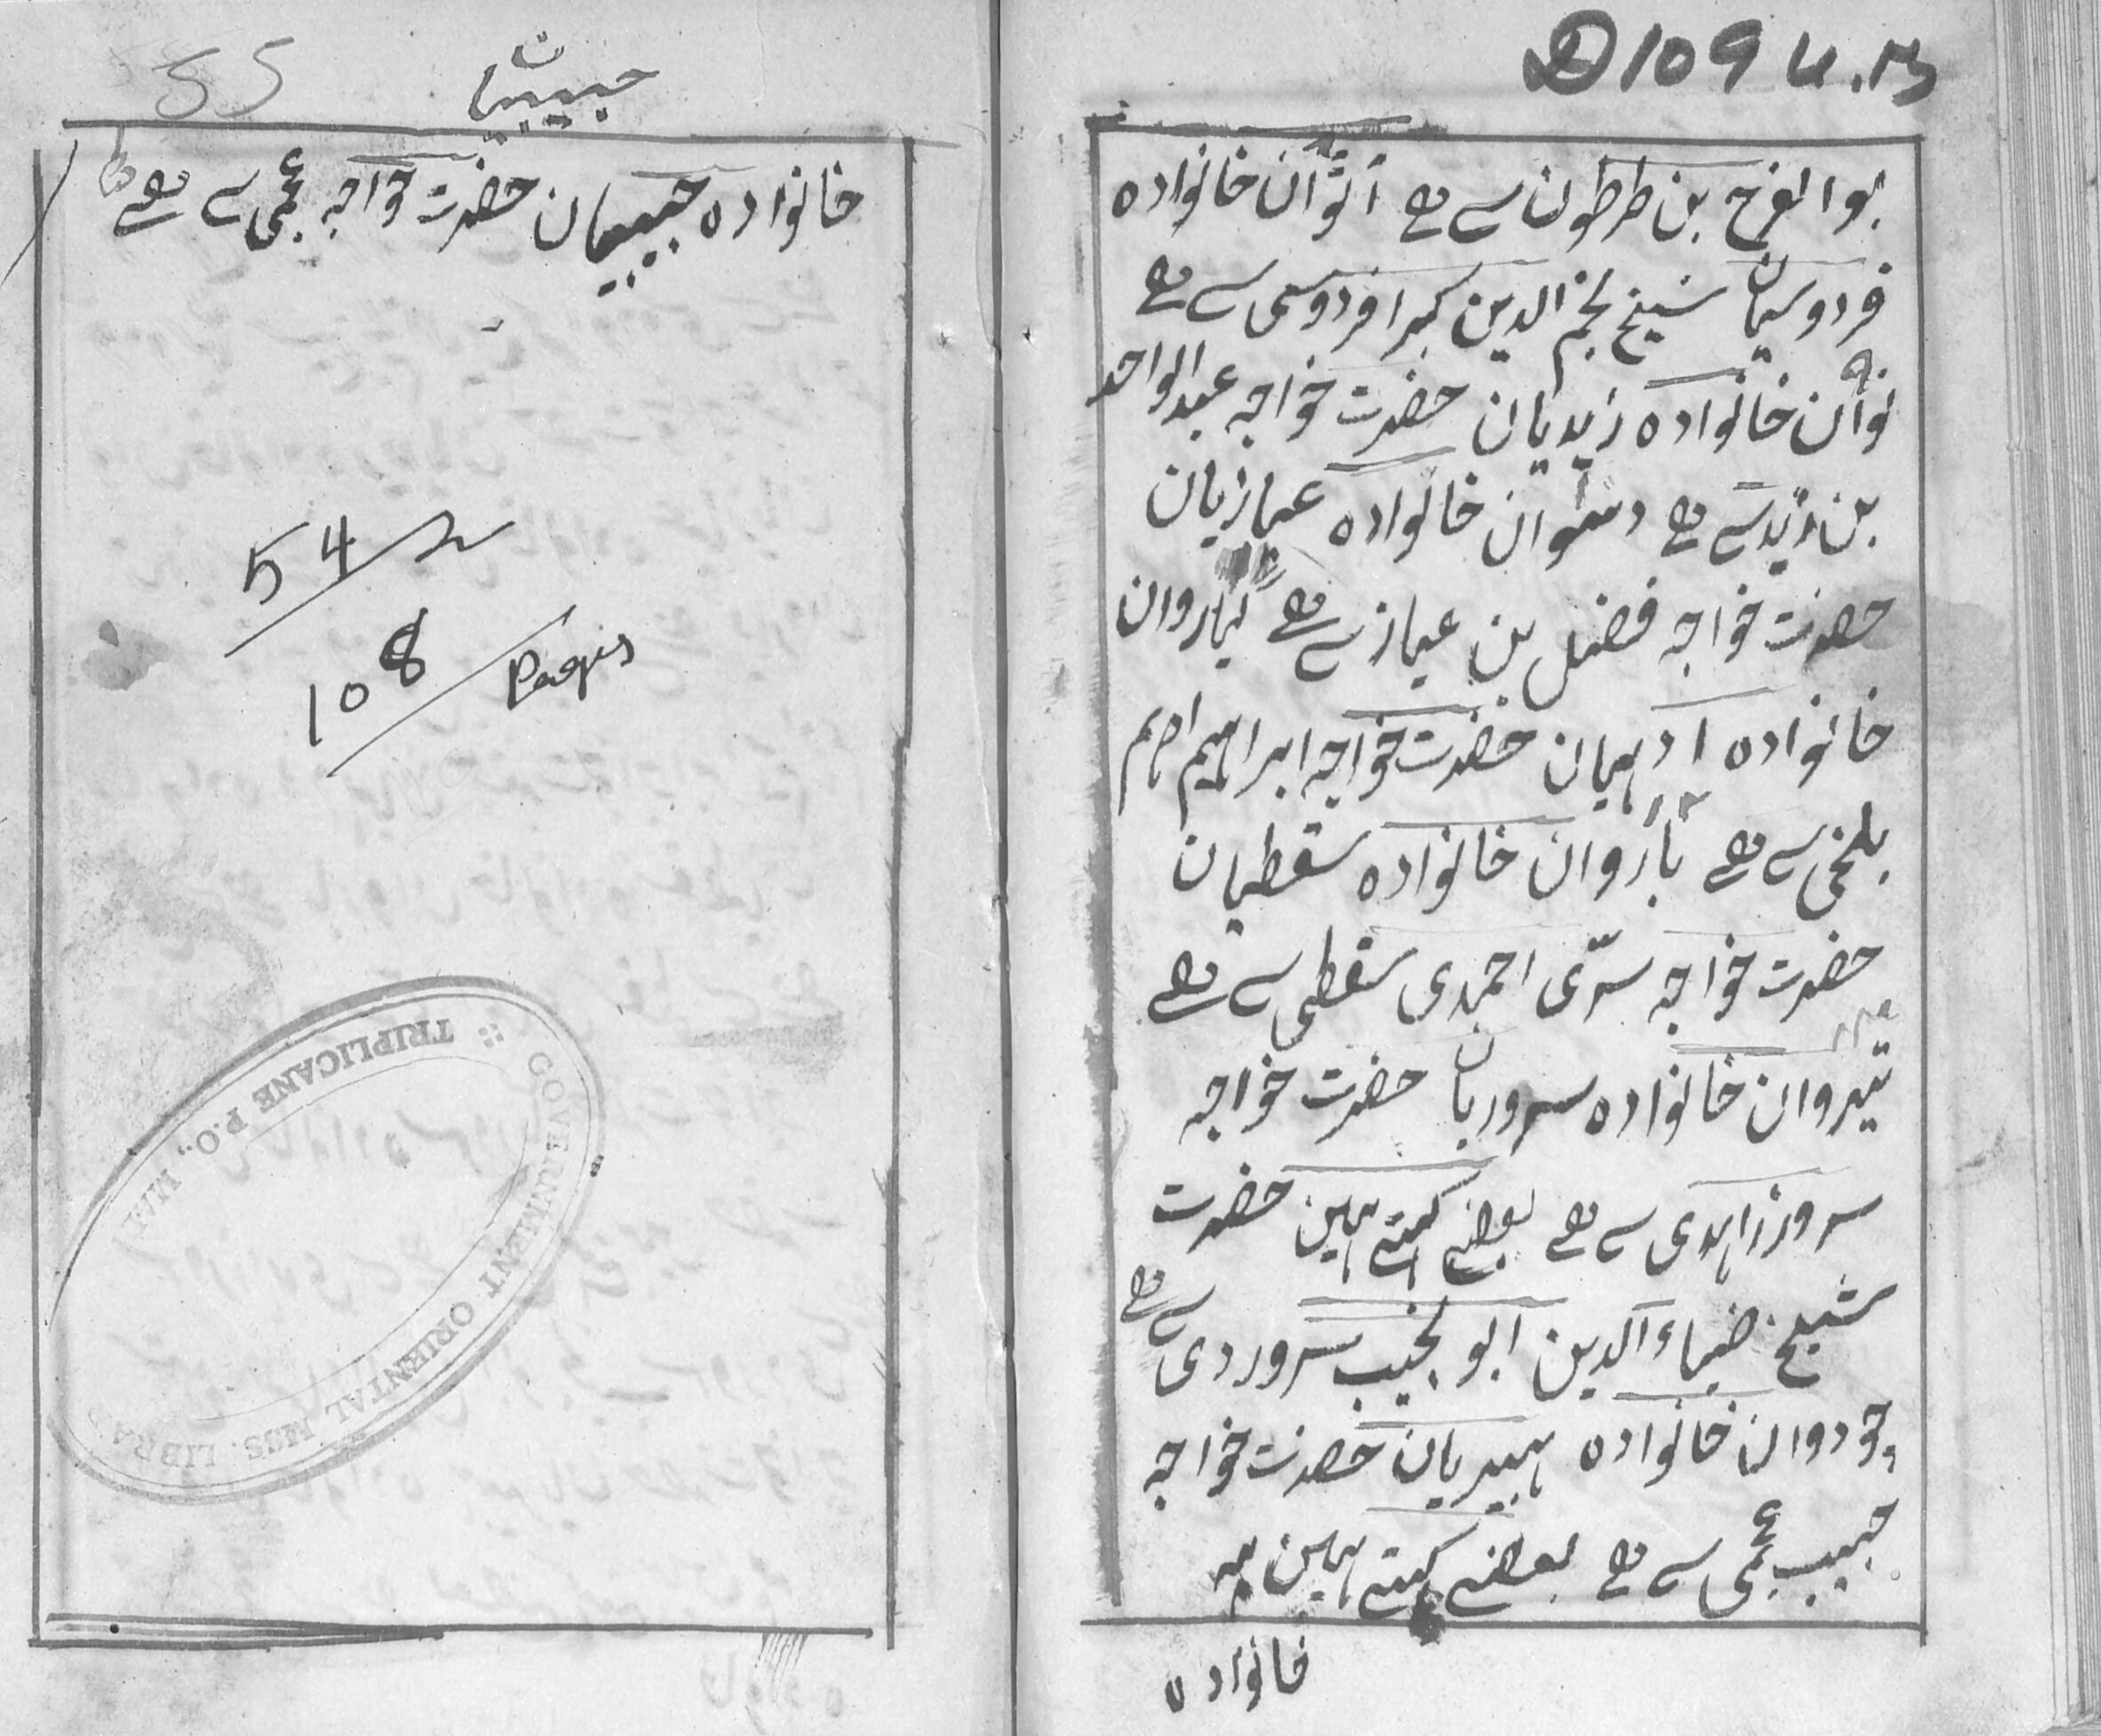 D 109 U.M
بوالفرح بن طرطون سے ہے آٹوان خانوادہ
فردوسیان شیخ نجم الدین کبرا فردوسی سے ہے
نوان خانوادہ زیدیان حضرت خواجہ عبدالواحد
بن زید سے ہے دسوان خانوادہ عیازیان
حضرت خواجہ فضیل بن عیاز سے ہے گیاروان
خانوادہ ادہمیان حضرت خواجہ ابراہیم ادہم
بلخی سے ہے باروان خانوادہ سقطیان
حضرت خواجہ سرّی احمدی سقطی سے ہے
تیروان خانوادہ سروریان حضرت خواجہ
سرور زاہدی سے ہے بعضے کہتے ہین حضرت
شیخ ضیاء الدین ابو نجیب سروردی سے ہے
چودوان خانوادہ ہبیریان حضرت خواجہ
حبیب عجمی سے ہے بعضے کہتے ہین
خانوادہ
55
حبیبیان
خانوادہ حبیبیان حضرت خواجہ عجمی سے ہے
54
108 Pages
GOVERNMENT ORIENTAL MSS. LIBRA
TRIPLICANE P.O., MA